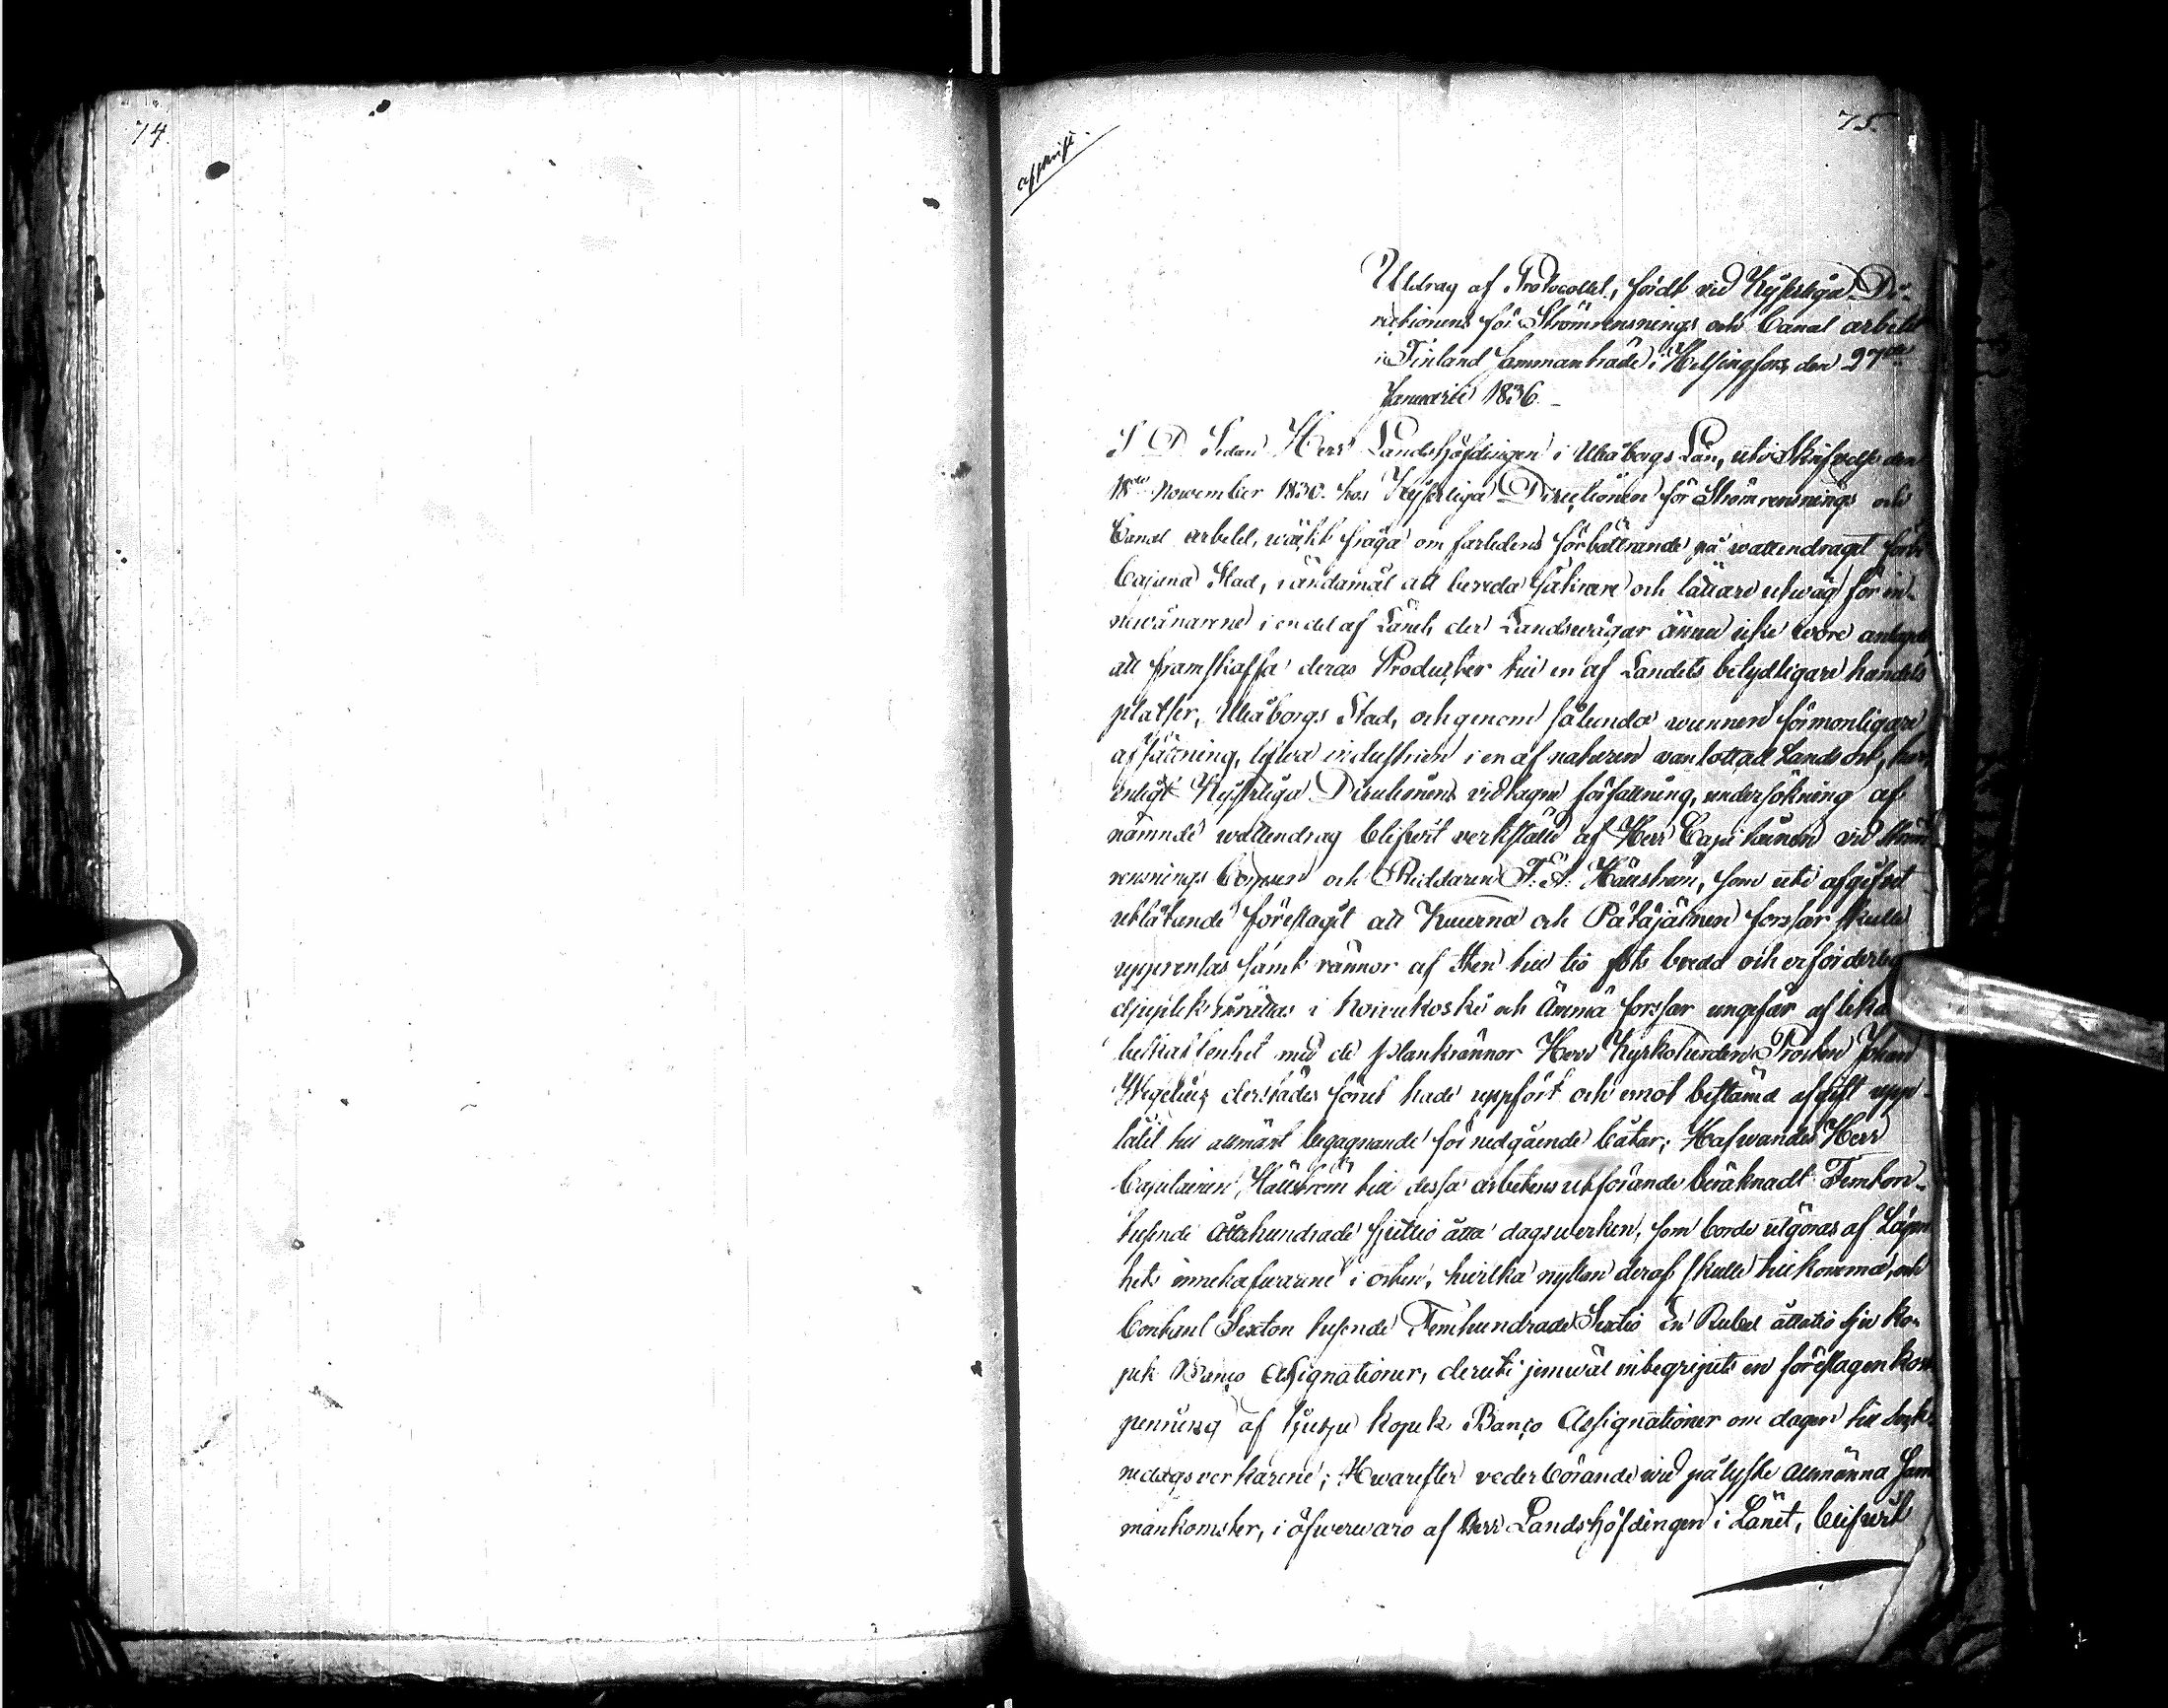 74.
75.
afskrift.
Utdrag af Protocollet, fördt vid Kejserliga Di-
rectionens för Strömrensnings och Canal arbeten
i Finland sammanträde i Helsingfors den 27de
Januarii 1836.
S. D. Sedan Herr Landshöfdingen i Uleåborgs Län, uti Skrifvelse den
18de November 1830. hos Kejserliga Directionen för Strömrensnings och
Canal arbetet, wäckt fråga om farledens förbättrande på wattendraget förbi
Cajana Stad, i ändamål att bereda säkrare och lättare utwäg för in-
newånarene i en del af Länet, der Landswägar ännu icke wore anlagde
att framskaffa deras Producter till en af Landets betydligare handels
platser, Uleåborgs Stad, och genom sålunda wunnen förmonligare
afsättning, lifwa industrien i en af naturen wanlottad Landsort, har,
enligt Kejserliga Directionens vidtagne författning, undersökning af
nämnde wattendrag blifvit verkstäld af Herr Capitainen vid Ström-
rensnings Corpsen och Riddaren F: A: Hällström, som uti afgifvet
utlåtande föreslagit att Kuurna och Pätäjäinen forssar skulle
upprensas samt rännor af Sten till tio fots bredd och erforderlig
djuplek inrättas i Koivukoski och Ämmä forssar ungefär af lika
beskaffenhet med de plankrännor Herr Kyrkoherden Prosten Johan
Wegelius derstädes förut hade uppfört och emot bestämd afgift upp-
låtit till allmänt begagnande för nedgående båtar; Hafwandes Herr
Capitainen Hällström till dessa arbetens utförande beräknadt Femton-
tusende Åttahundrade sjuttio åtta dagsverken, som borde utgöras af Lägen-
hets innehafvarene i orten, hvilka nyttan deraf skulle tillkomma, och
Contant Sexton tusende Femhundrade Sextio En Rubel åttatio sju ko-
pek Banco Assignationer, deruti jemwäl inbegripits en föreslagen kost-
penning af tjugu kopek Banco Assignationer om dagen till
Hwarefter vederbörande wid pålyste allmänna Sam-
mankomster, i öfwerwaro af Herr Landshöfdingen i Länet, blifwit